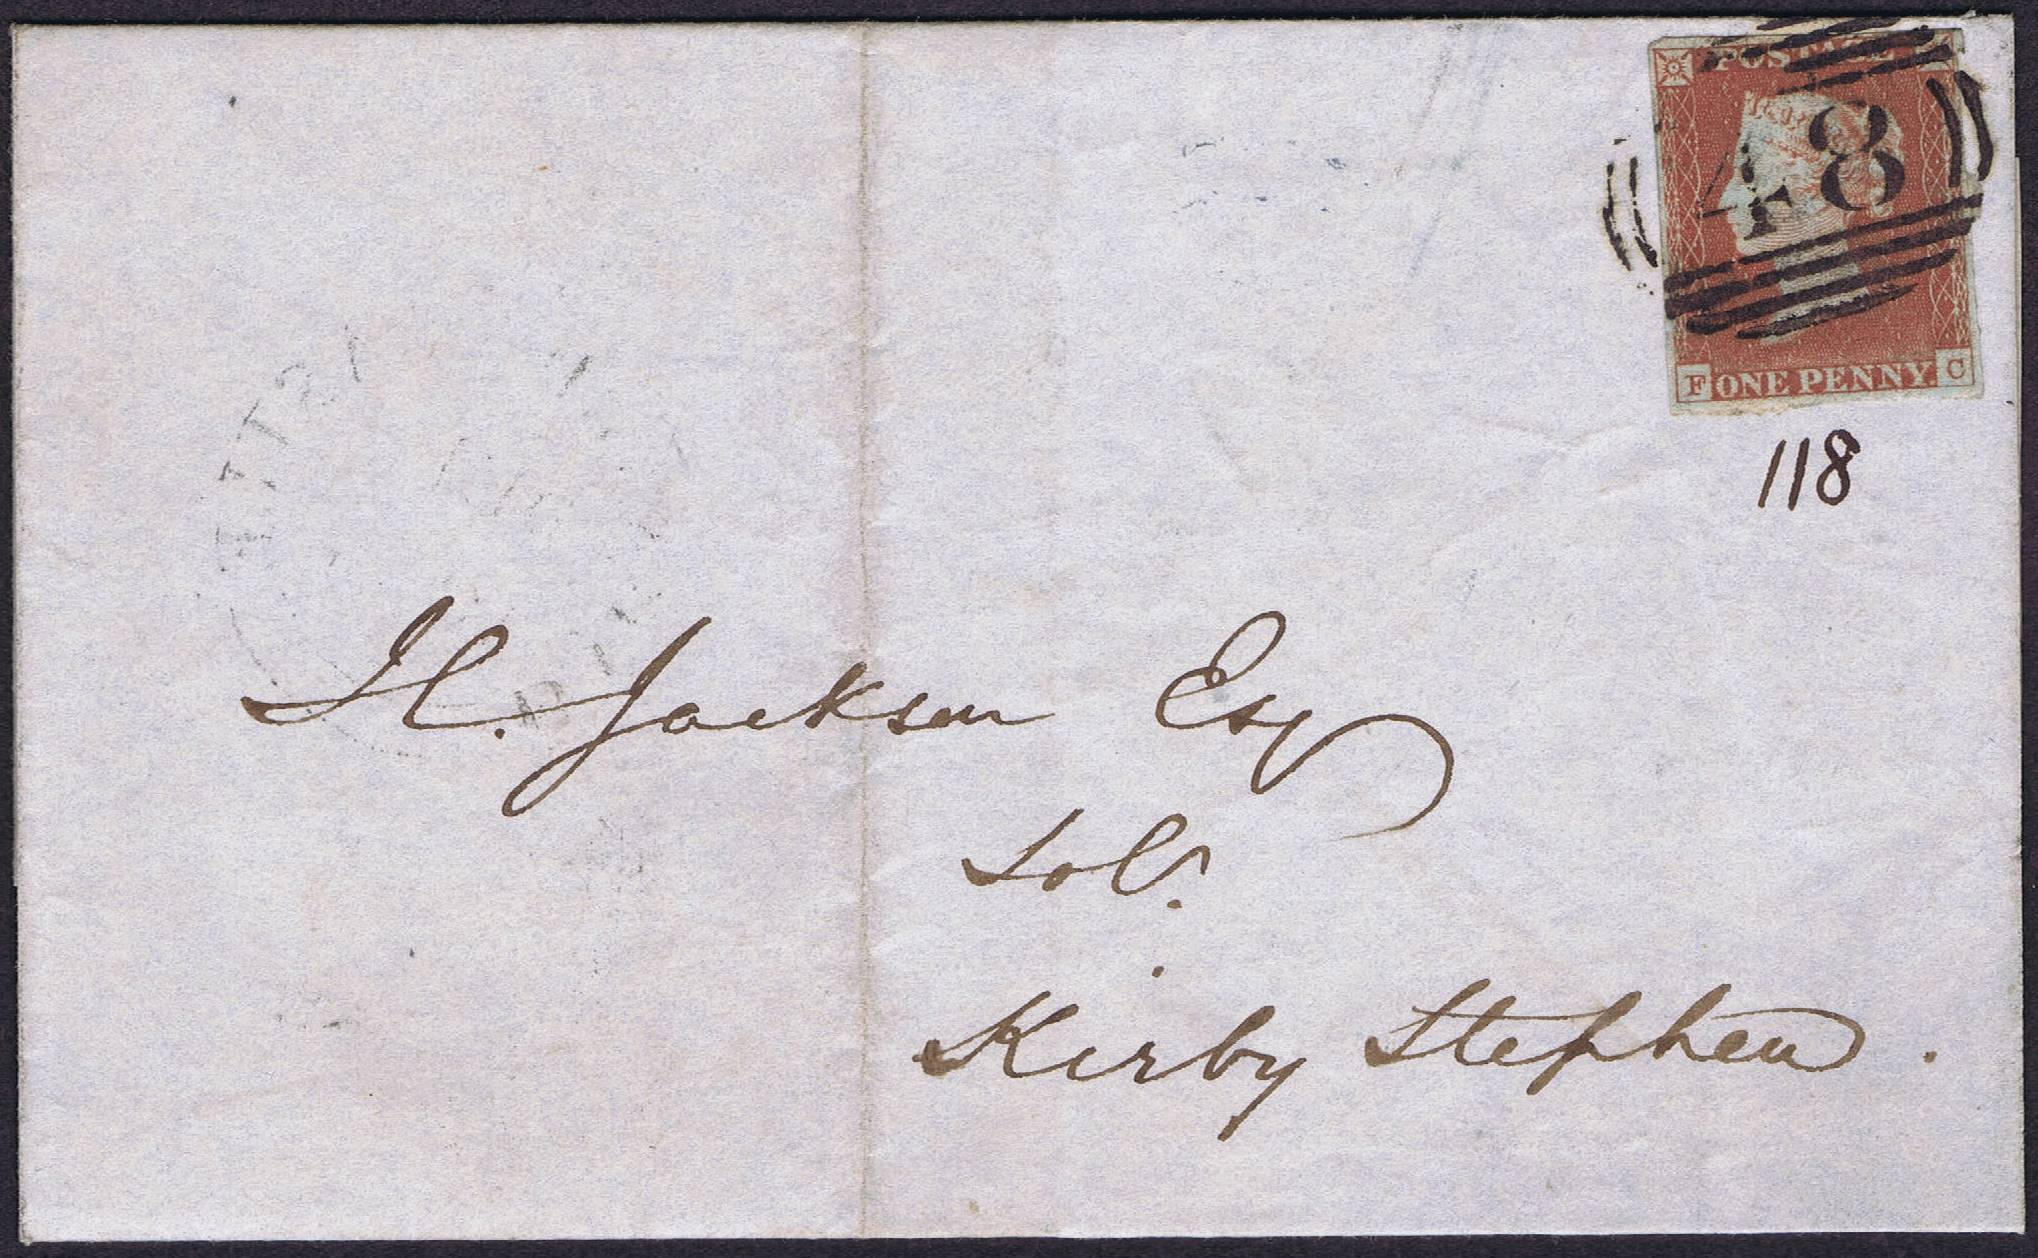 POSTAGE
48
F ONE PENNY C
118
H. Jackson Esq
Solr.
Kirby Stephen.